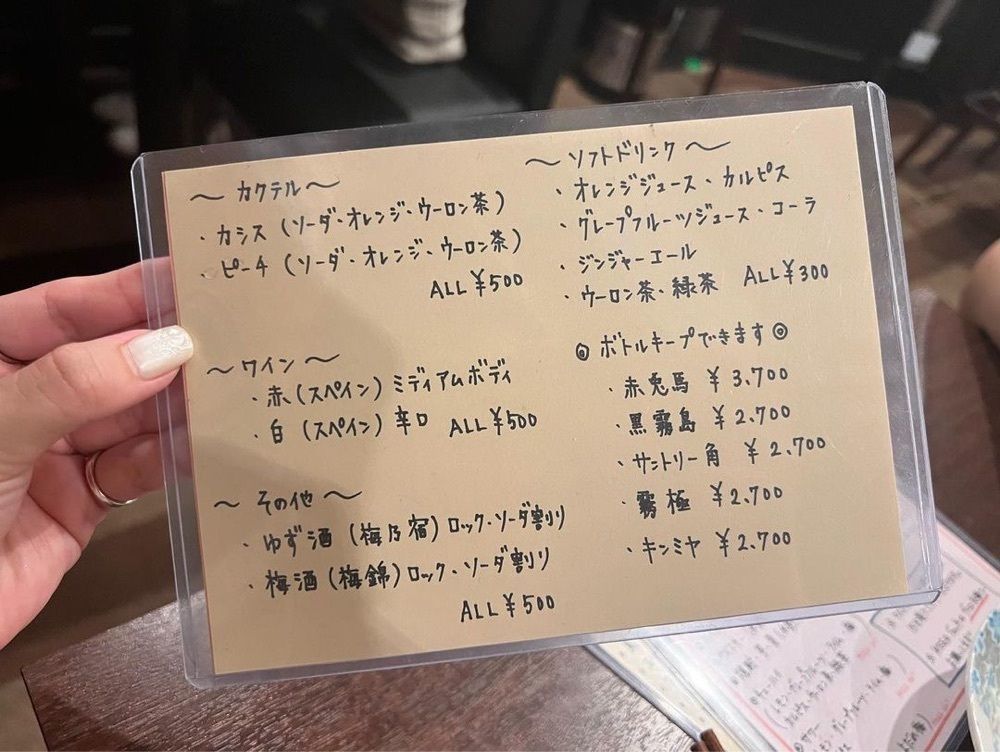 ～カクテル～
・カシス（ソーダ・オレンジ・ウーロン茶）
・ピーチ（ソーダ・オレンジ・ウーロン茶）
ALL ¥500
～ワイン～
・赤（スペイン）ミディアムボディ
・白（スペイン）辛口 ALL ¥500
～その他～
・ゆず酒（梅乃宿）ロック・ソーダ割り
・梅酒（梅錦）ロック・ソーダ割り
ALL ¥500
～ソフトドリンク～
・オレンジジュース・カルピス
・グレープフルーツジュース・コーラ
・ジンジャーエール
・ウーロン茶・緑茶 ALL ¥300
◎ボトルキープできます◎
・赤兎馬 ¥3.700
・黒霧島 ¥2.700
・サントリー角 ¥2.700
・霧極 ¥2.700
・キンミヤ ¥2.700